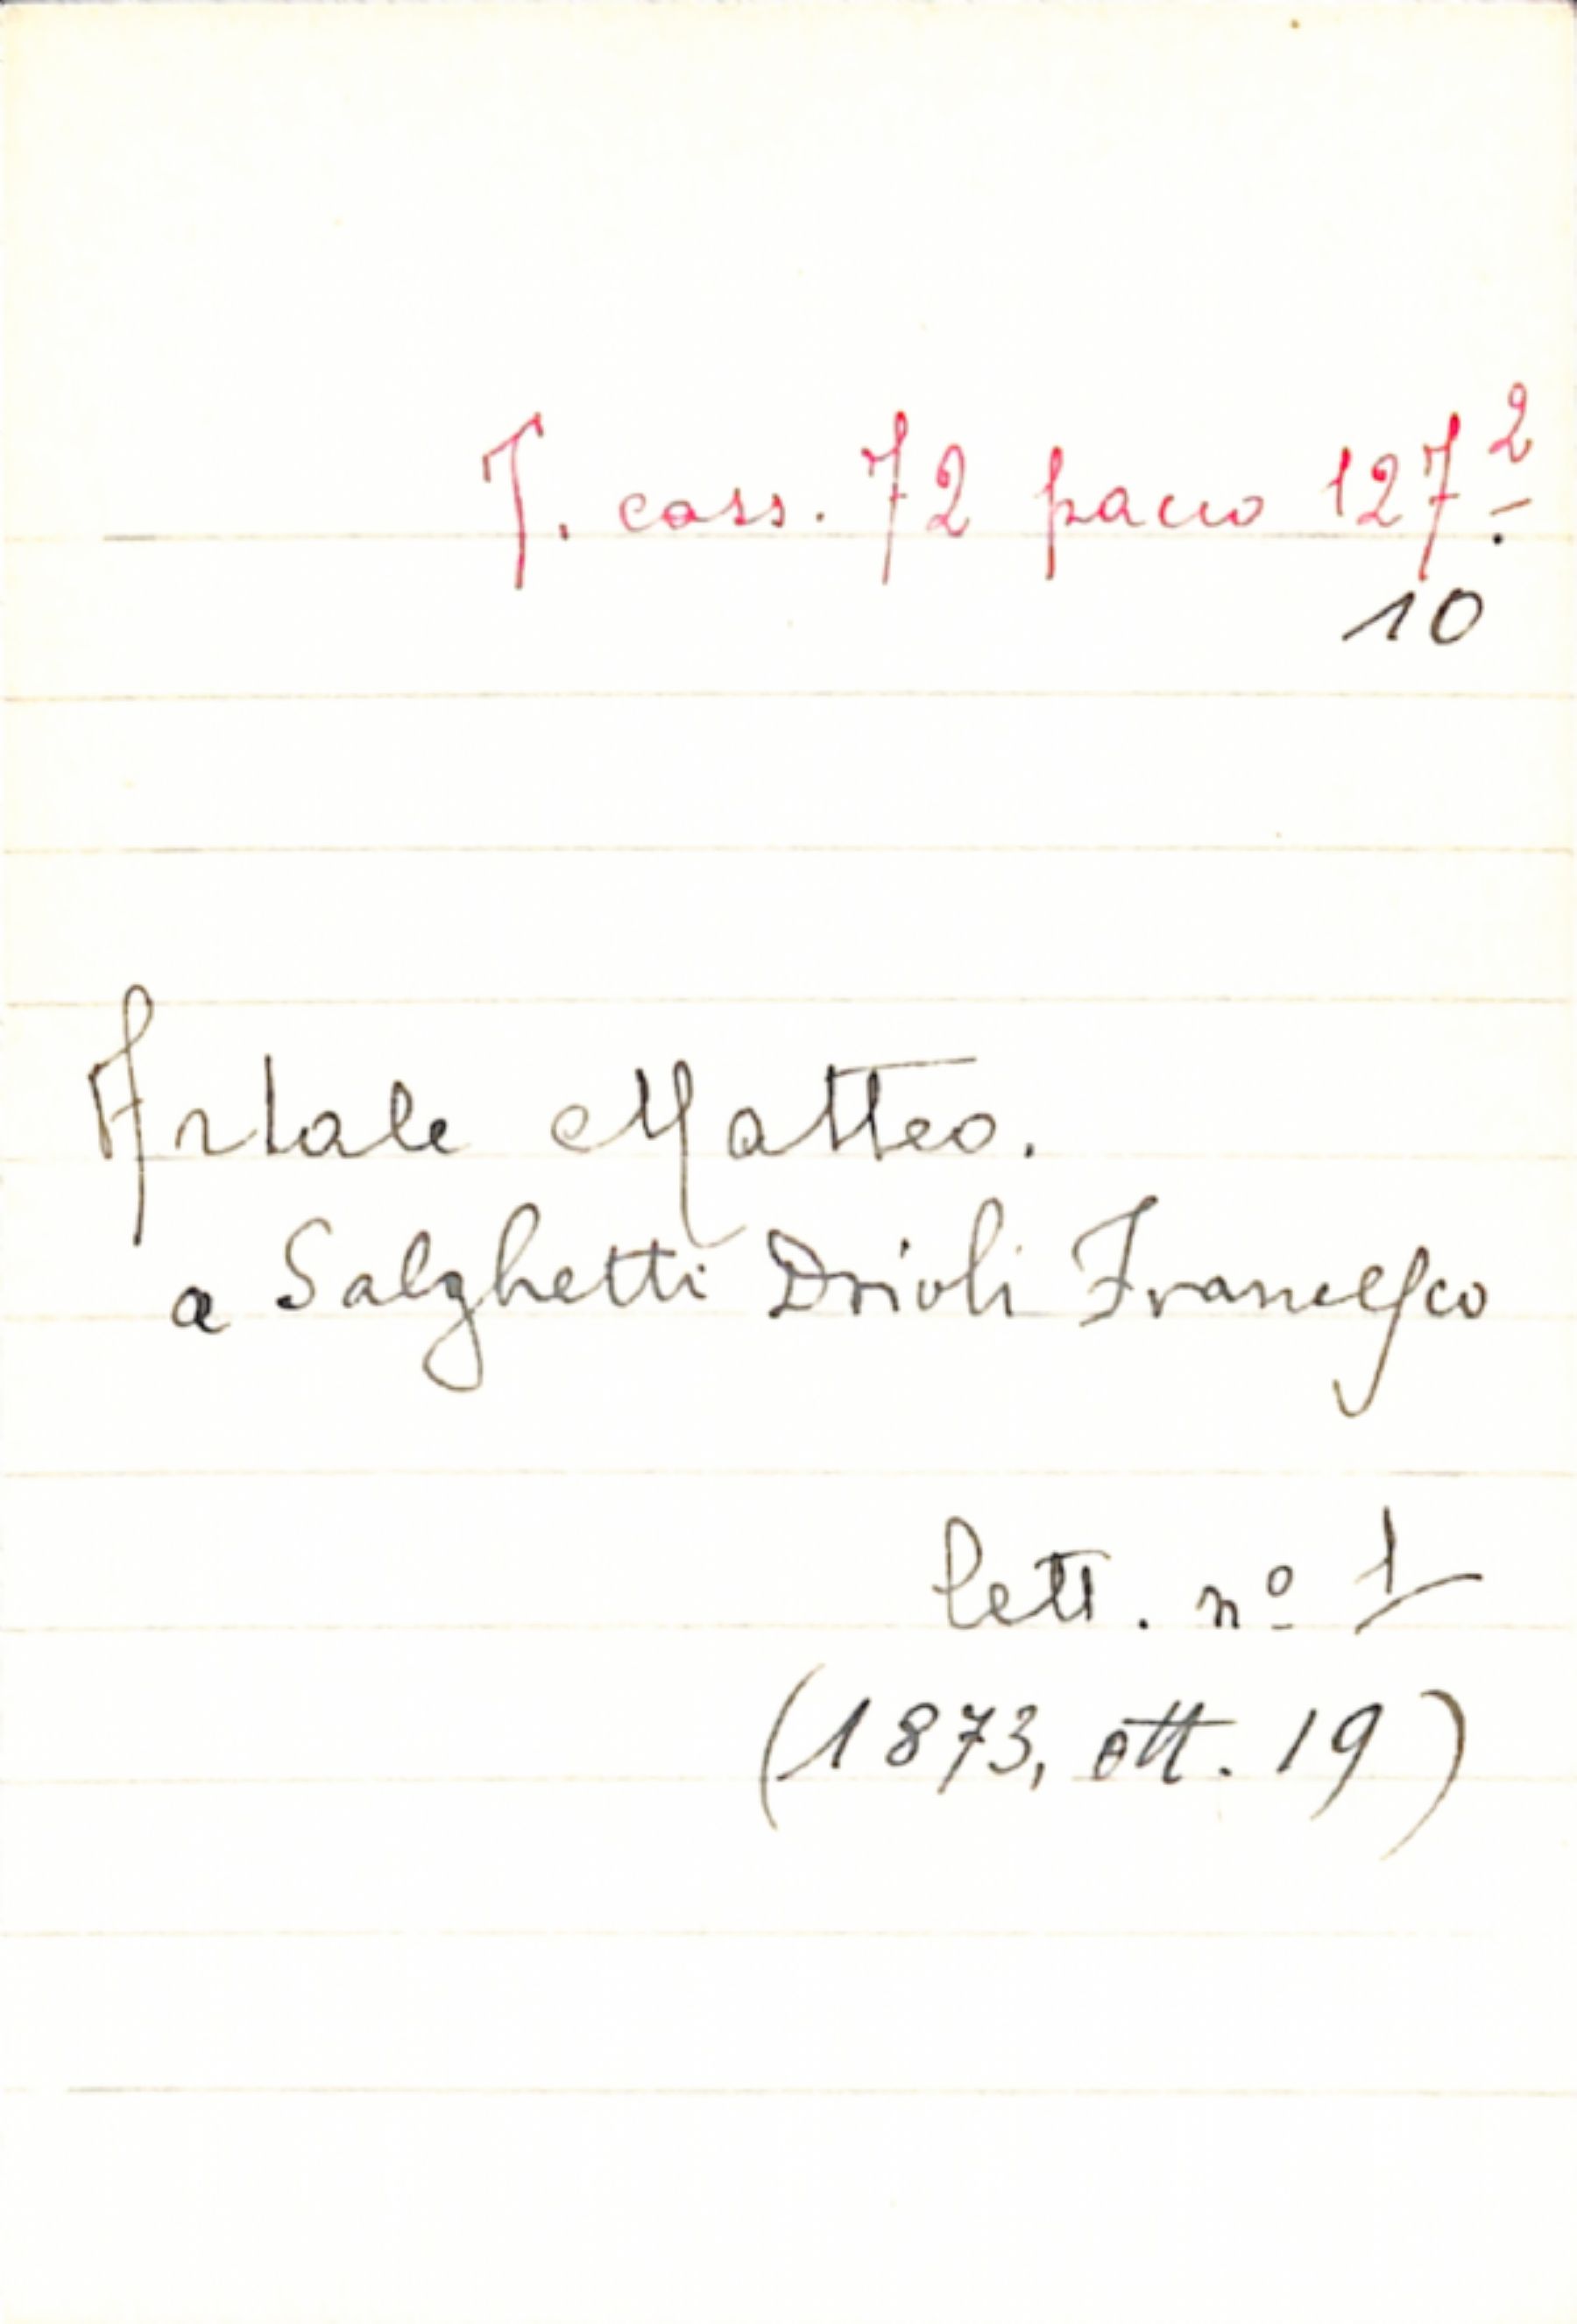 T. cass. 72 pacco 127²
10
Artale Matteo.
a Salghetti Drioli Francesco
lett. nº 1
(1873, ott. 19)